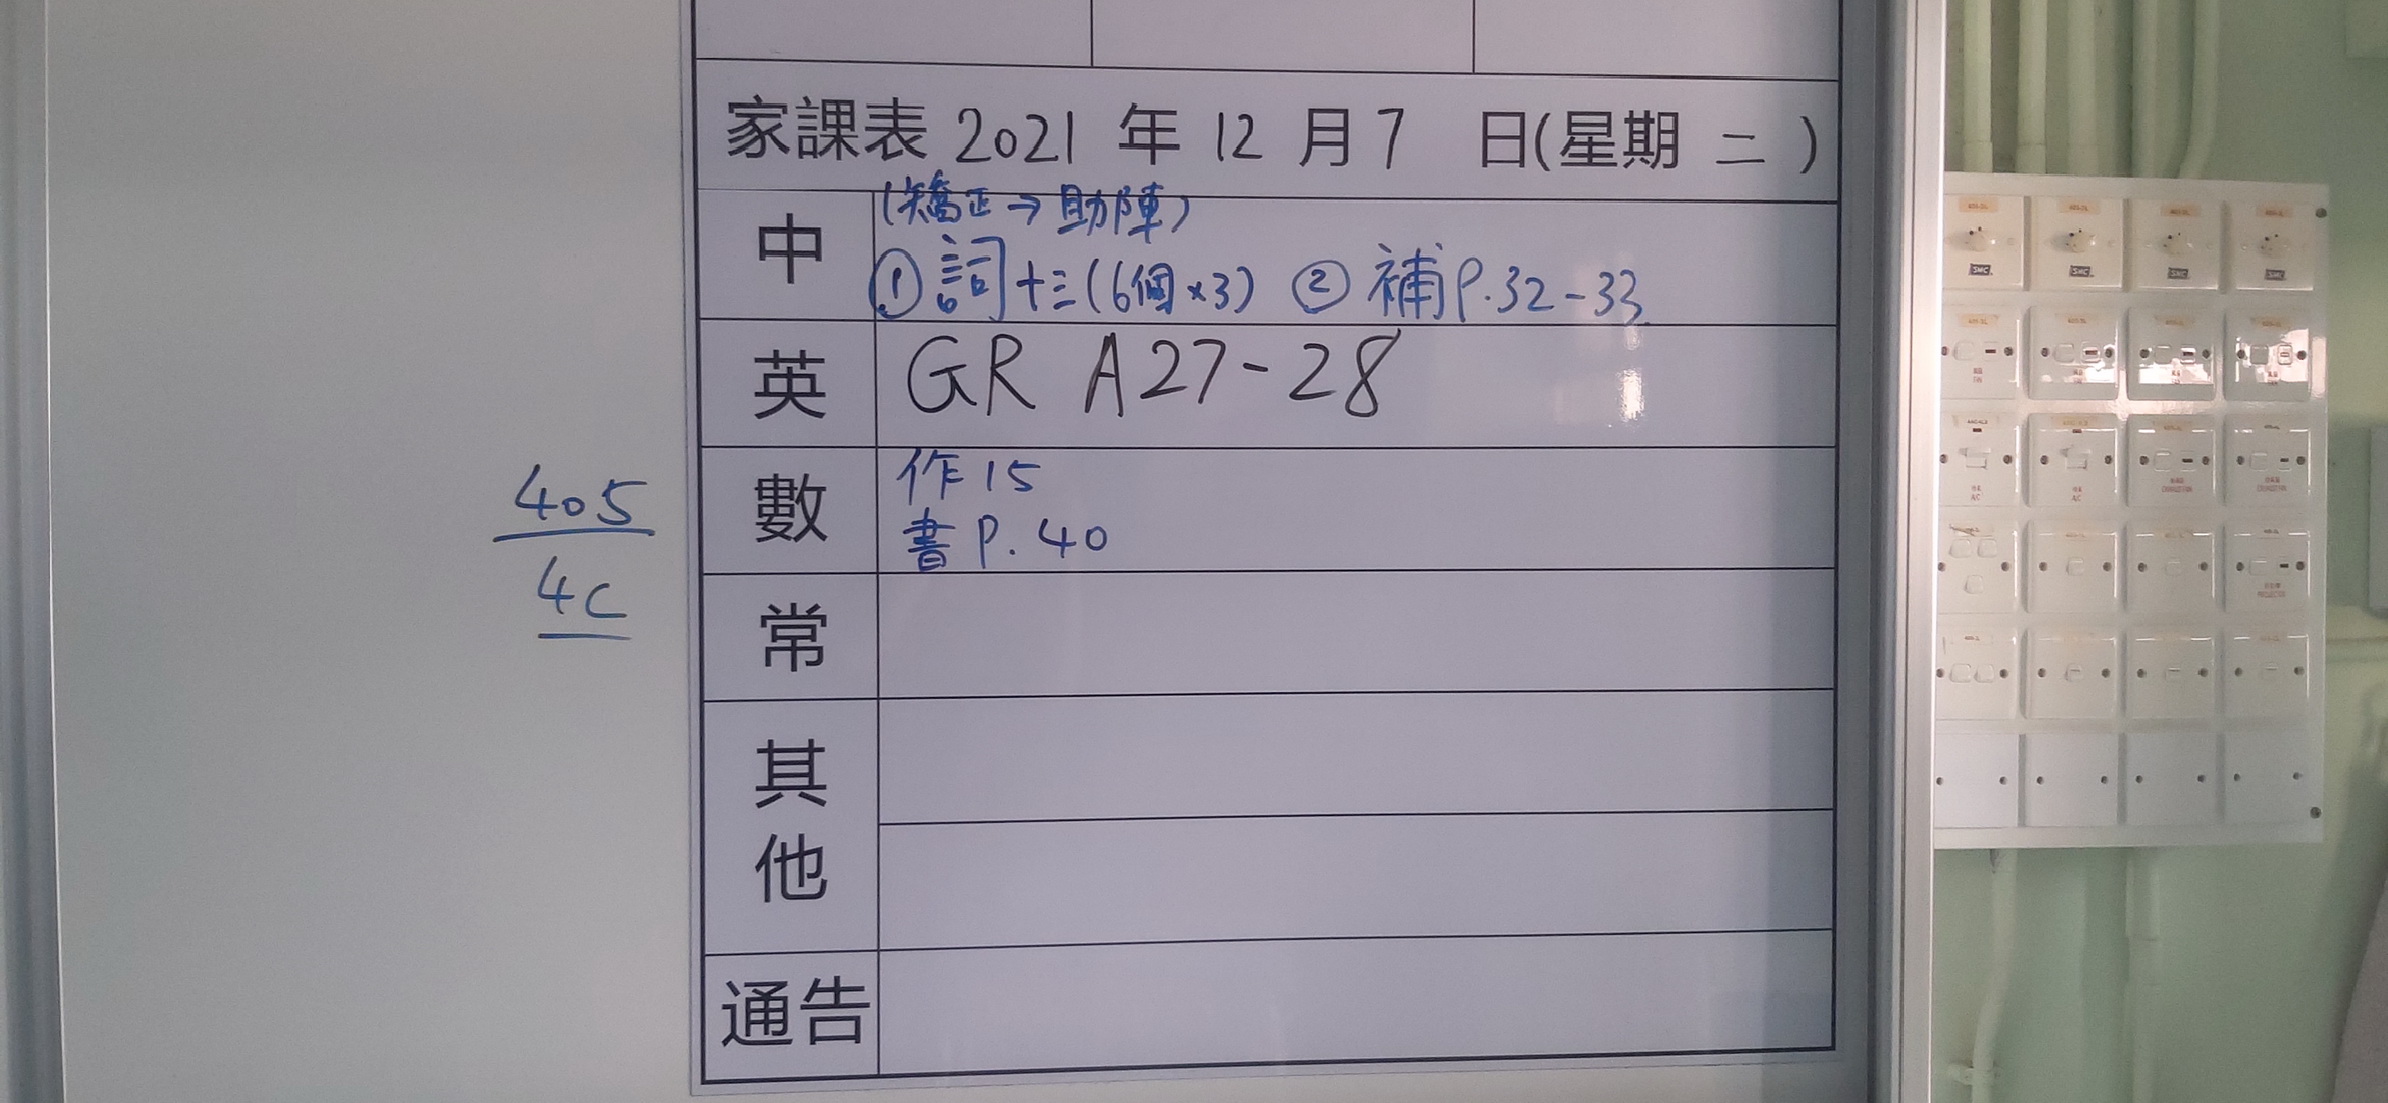 家課表 2021 年 12 月 7 日(星期 二 )
中
(矯正→助陣)
① 詞十三(6個×3) ② 補P.32-33
英
GR A27-28
數
作15
書P.40
常
其他
通告
405
4C